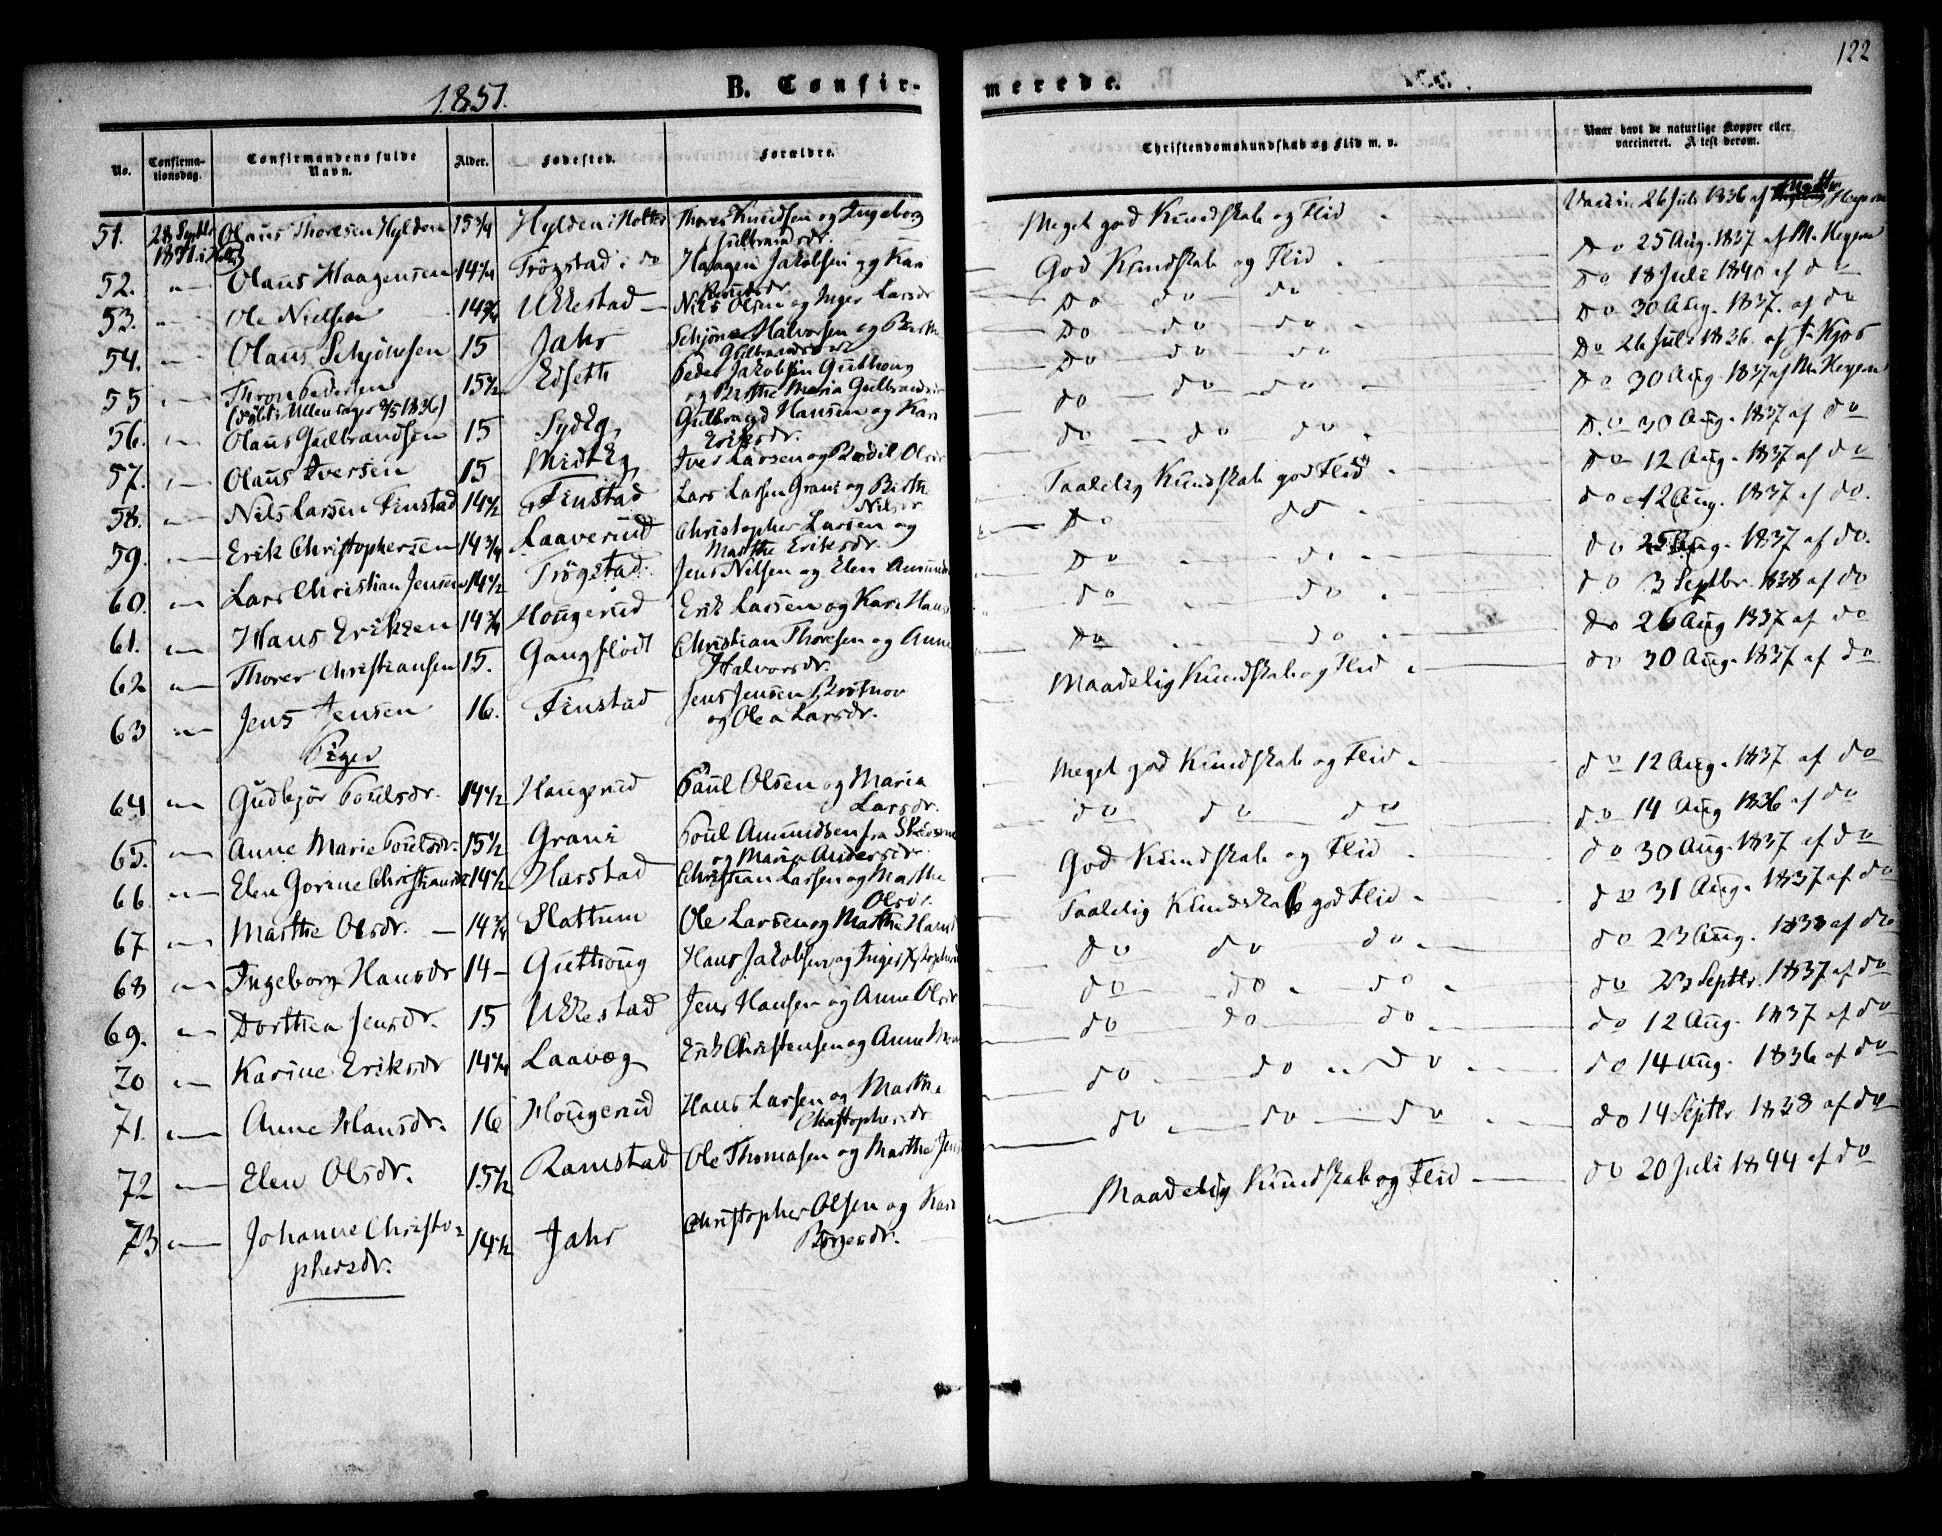 122
1851.
B. Confir-
merede.
No.
Confirma-
tionsdag.
Confirmandens fulde
Navn.
Alder.
Fødested.
Forældre.
Christendomskundskab og Flid m. v.
Naar havt de naturlige Kopper eller
vaccineret. Attest derom.
51. 28 Septbr Olaus Thoresen Hylden 15 3/4 Hylden i Holter Thorer Knudsen og Ingeborg Meget god Kundskab og Flid 26 Juli 1836 af
1851 i Gulbrandsdr.
52. Olaus Haagensen 14 1/4 Trøgstad i do Haagen Jakobsen og Kari God Kundskab og Flid do 25 Aug. 1837 af M. Heyem
Knudsdr.
53. Ole Nielsen 14 3/4 Ukkestad Nils Olsen og Inger Larsdr do do do do 18 Juli 1840 af do
54. Olaus Schjønesen 15 Jahr Schjøne Halvorsen og Birthe do do do do 30 Aug. 1837. af do
Gulbrandsdatr
55 Thron Pedersen 15 1/2 Edseth Peder Jakobsen Guttoug do do do do 26 Juli 1836. af Kjos
(døbt i Ullensager 8/5 1836) og Birthe Maria Gulbrandsdr
56. Olaus Gulbrandsen 15 Sydeg Gulbrand Hansen og Kari do do do do 30 Aug 1837 af M. Heyem
Eriksdr.
57. Olaus Iversen 15 Midteg Iver Larsen og Bodil Olsdr do do do do 30 Aug. 1837 af do
58. Nils Larsen Finstad 14 1/2 Finstad Lars Larsen Grani og Birthe Taalelig Kundskab god Flid do 12 Aug. 1837 af do
Nilsdr
59. Erik Christophersen 14 3/4 Laaverud Christopher Larsen og do do do 12 Aug. 1837 af do.
Marthe Eriksdr.
60. Lars Christian Jensen 14 1/2 Trøgstad Jens Nilsen og Elen Amunds do do do 25 Aug. 1837 af do.
61. Hans Eriksen 14 3/4 Hougerud Erik Larsen og Kari Hans do do do 3 Septbr. 1838 af do
62 Thorer Christiansen 15. Gangflødt Christian Thoresen og Anne do do do 26 Aug 1837 af do
Halvorsdr.
63 Jens Jensen 16. Finstad Jens Jensen Brotnov Maadelig Kundskab og Flid do 30 Aug. 1837 af do
og Olea Larsdr.
Piger
64 Gudbjør Poulsdr. 14 1/2 Haugerud Paul Olsen og Maria Meget god Kundskab og Flid do 12 Aug. 1837 af do
Larsdr.
65. Anne Marie Poulsdr. 15 1/2 Grani Poul Amundsen fra do do do do 14 Aug 1836 af do
og Maria Andersdr.
66. Elen Gorine Christiansdr 14 1/2 Harstad Christian Larsen og Marthe God Kundskab og Flid do 30 Aug. 1837 af do
Olsdr.
67 Marthe Olsdr. 14 3/4 Slattum Ole Larsen og Marthe Hansd Taalelig Kundskab god Flid do 31 Aug. 1837 af do
68 Ingeborg Hansdr 14 Guttoug Hans Jakobsen og Inger do do do do 23 Aug. 1838 af do
69. Dorthea Jensdr. 15 Ukkestad Jens Hansen og Anne Olsdr do do do do 23 Septbr. 1837 af do
70 Karine Eriksdr 14 1/4 Laavæg Erik Christensen og Anne do do do do 12 Aug. 1837 af do
71. Anne Hansdr. 16 Hougerud Hans Larsen og Marthe do do do do 14 Aug. 1836 af do
Christophersdr.
72 Elen Olsdr. 15 1/2 Ramstad Ole Thomasen og Marthe Jens do do do do 14 Septbr. 1838 af do
73 Johanne Christo- 14 1/2 Jahr Christopher Olsen og Kari Maadelig Kundskab og Flid do 20 Juli 1844 af do
phersdr. Borgersdr.